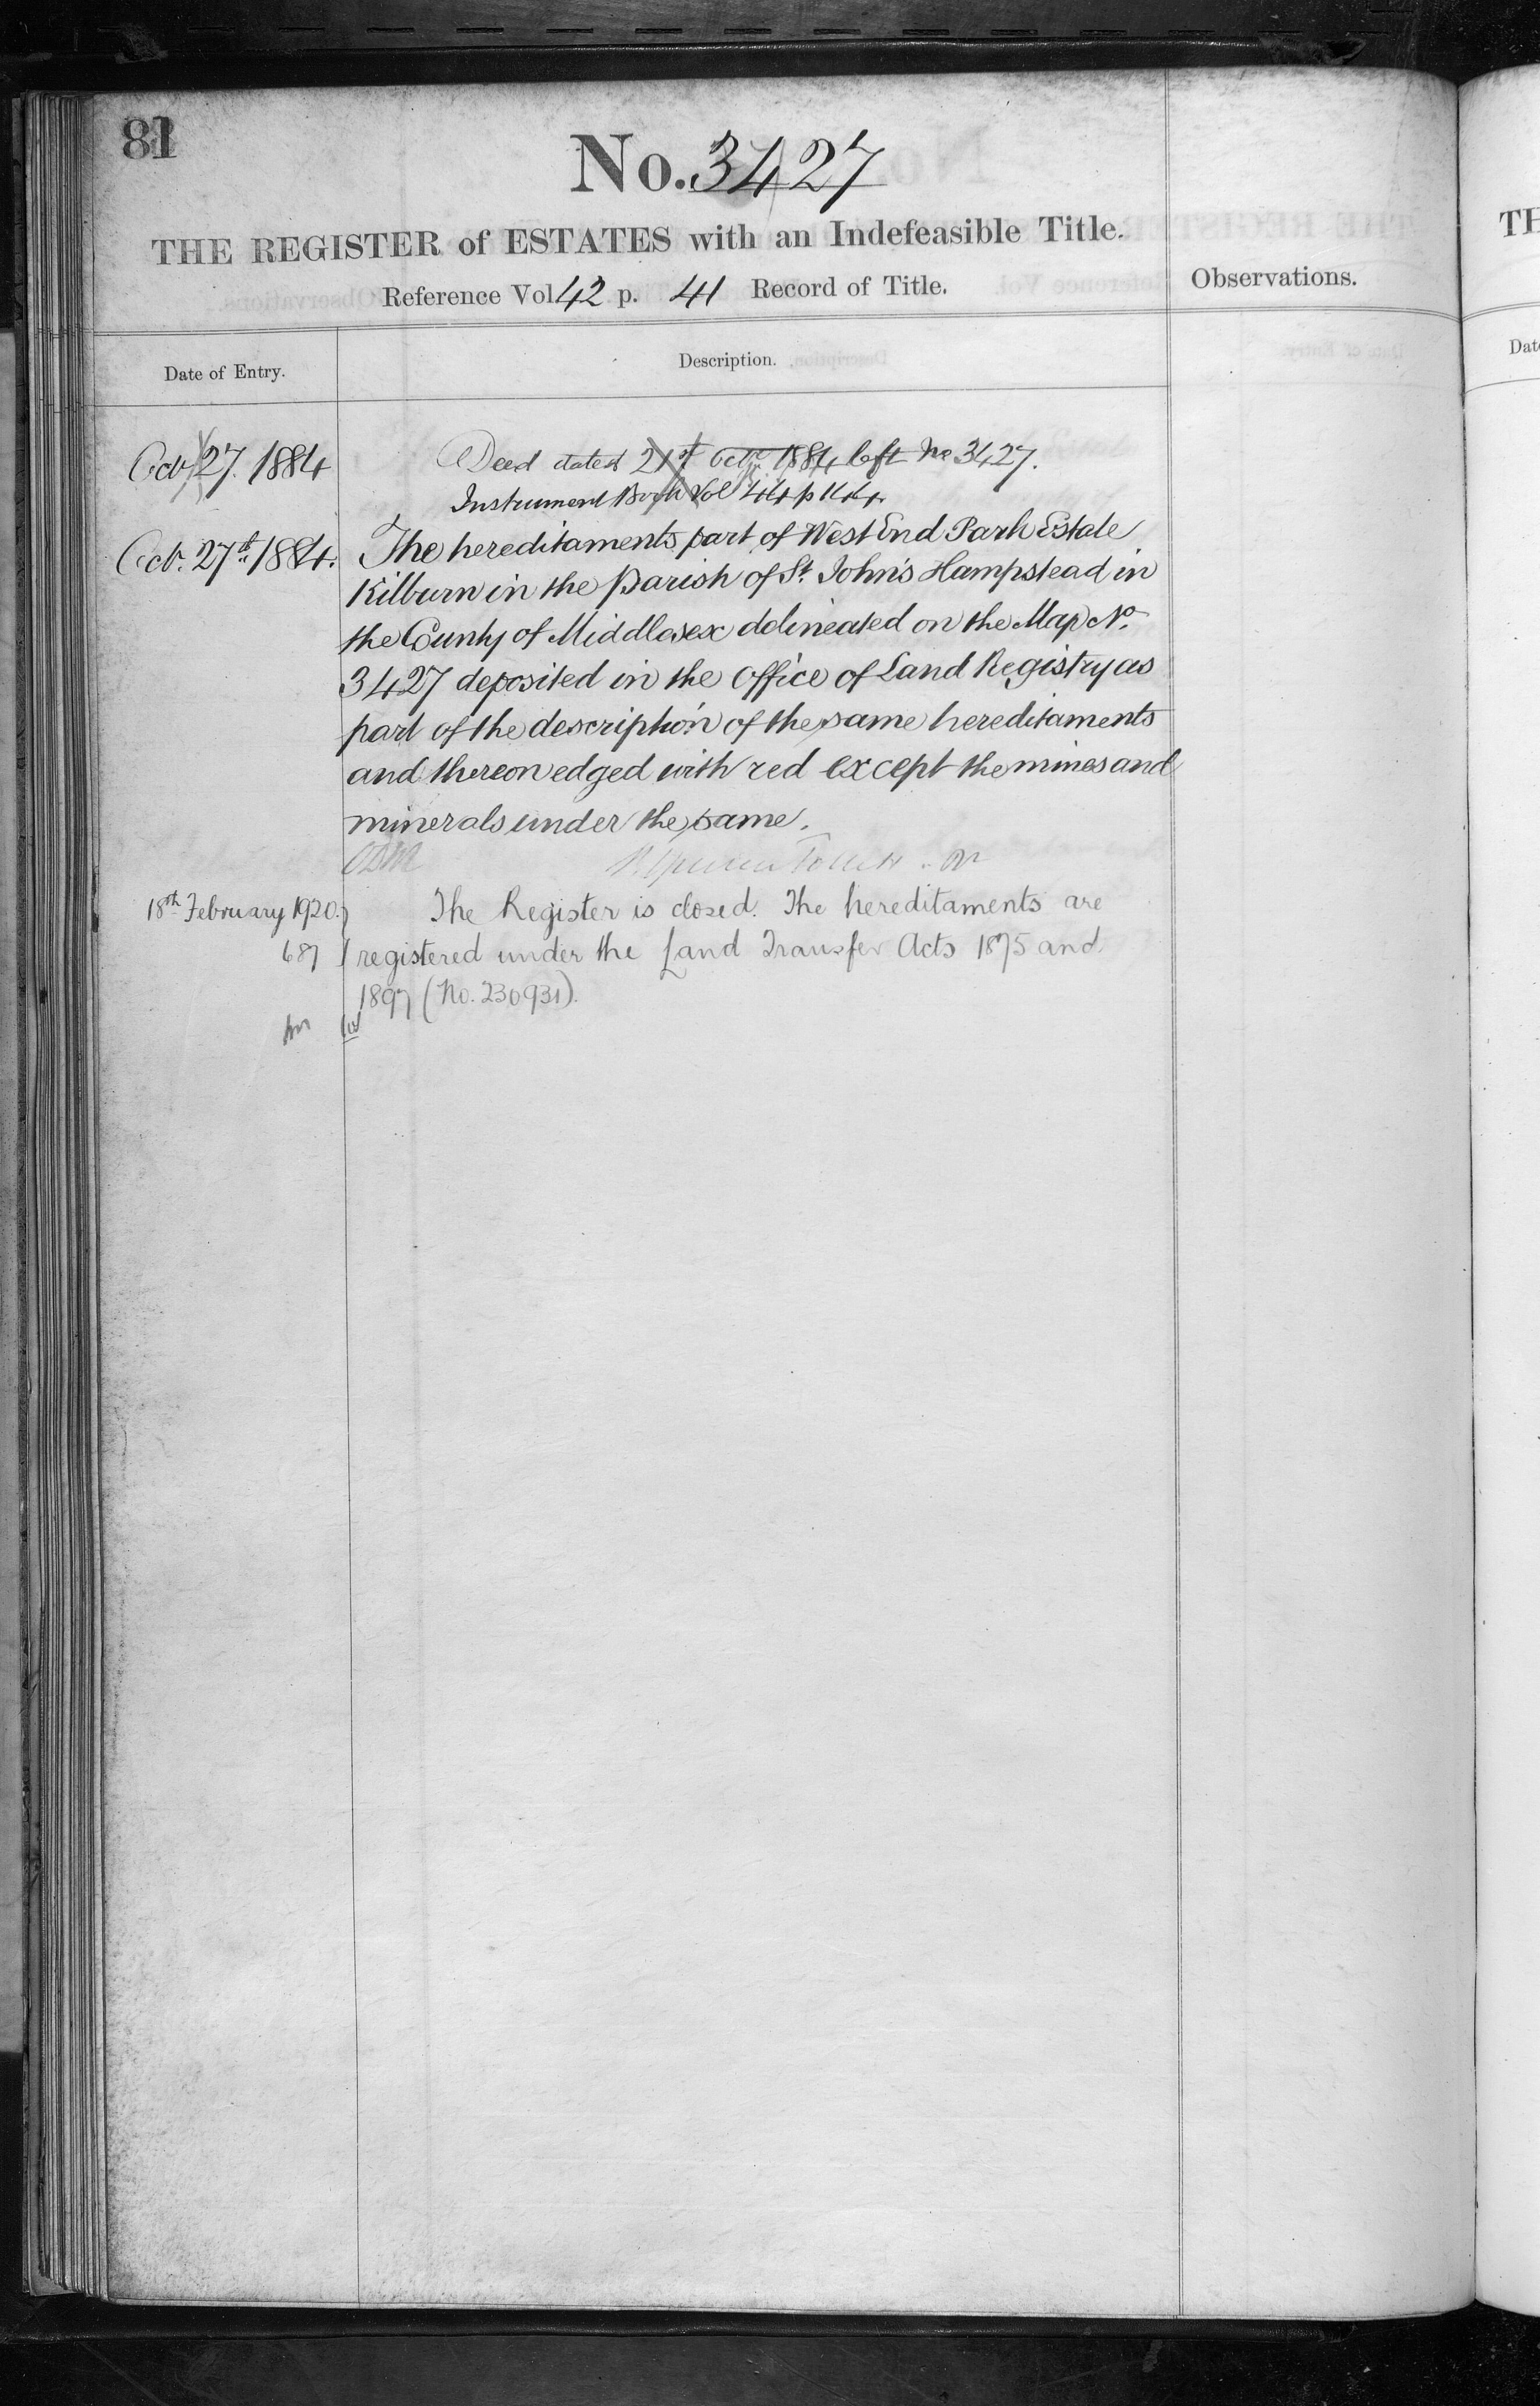 81
No. 3427
THE REGISTER of ESTATES with an Indefeasible Title.
Reference Vol. 42 p. 41 Record of Title.
Observations.
Date of Entry.
Description.
Oct 27. 1884
Deed dated 21st Octr. 1884 left No 3427.
Instrument Book Vol 44 p 144.
Oct. 27th 1884.
The hereditaments part of West End Park Estate
Kilburn in the Parish of St. John's Hampstead in
the County of Middlesex delineated on the Map No.
3427 deposited in the Office of Land Registry as
part of the description of the same hereditaments
and thereon edged with red except the mines and
minerals under the same.
18th February 1920.
The Register is closed. The hereditaments are
687
registered under the Land Transfer Acts 1875 and
1897 (No. 230931).
TH
Dat